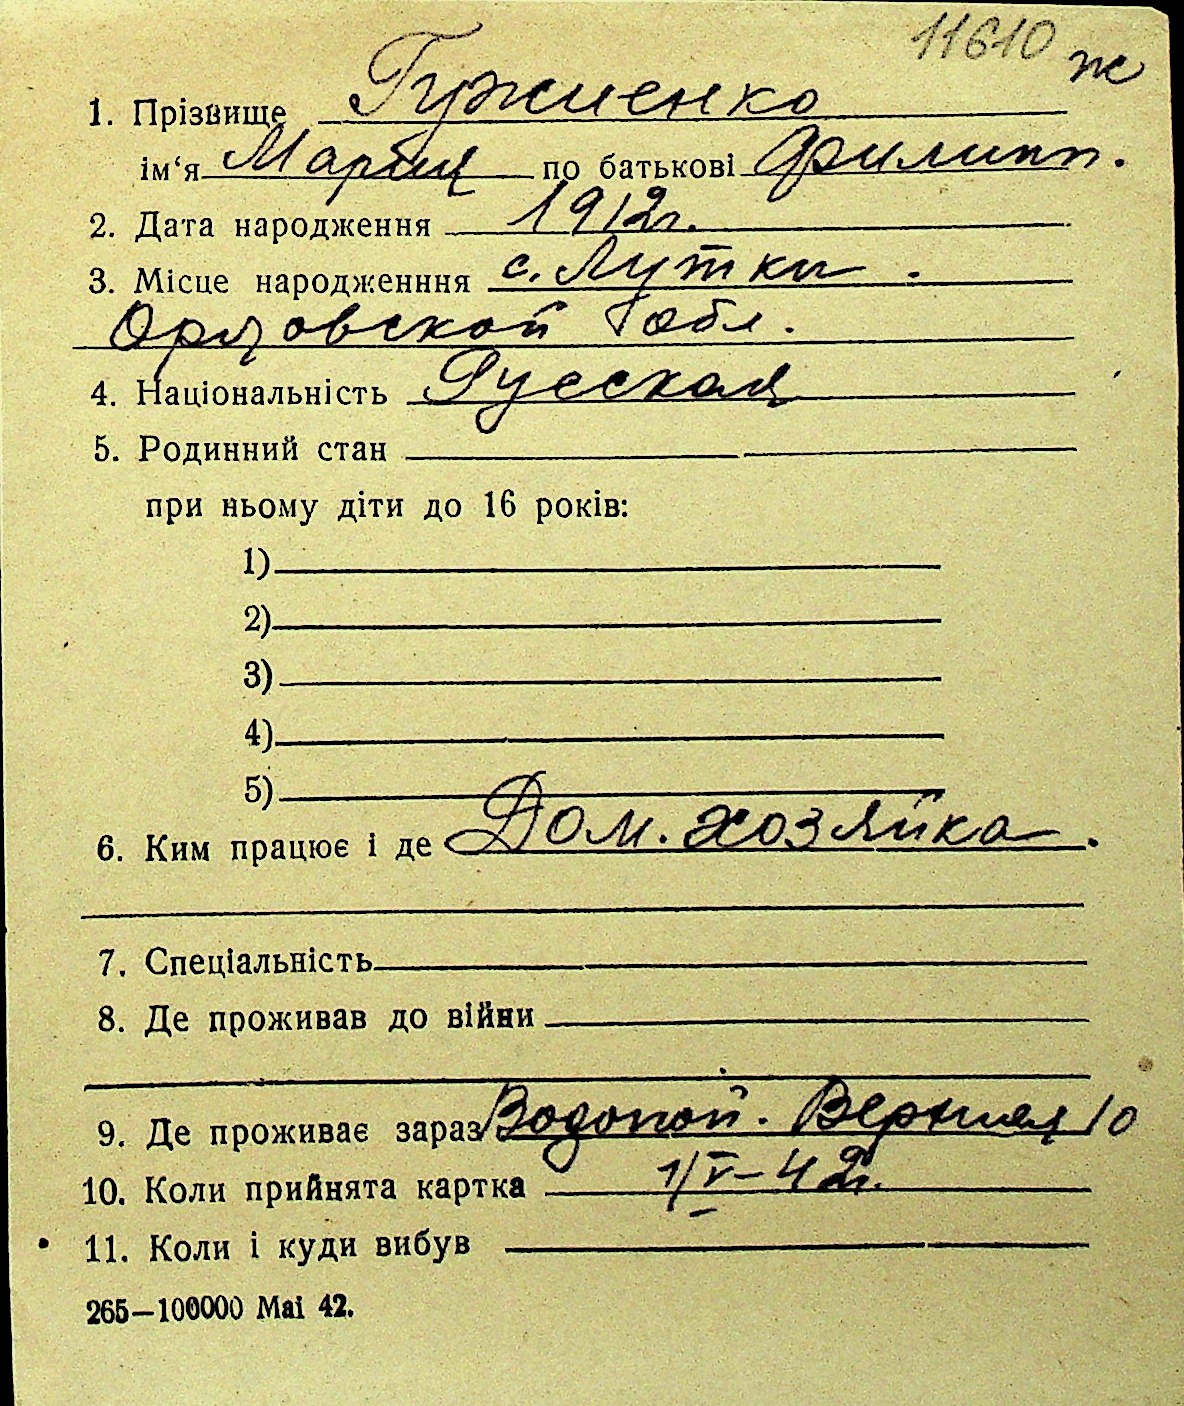 11610 ж
1. Прізвище Гужиенко
ім‘я Мария по батькові Филипп.
2. Дата народження 1912г.
3. Місце народженння с. Лутки.
Орловской обл.
4. Національність Русская
5. Родинний стан
при ньому діти до 16 років:
1)
2)
3)
4)
5)
6. Ким працює і де Дом. хозяйка.
7. Спеціальність
8. Де проживав до війни
9. Де проживає зараз Водопой. Верхняя 10
10. Коли прийнята картка 1/V–42г.
11. Коли і куди вибув
265—100000 Mai 42.